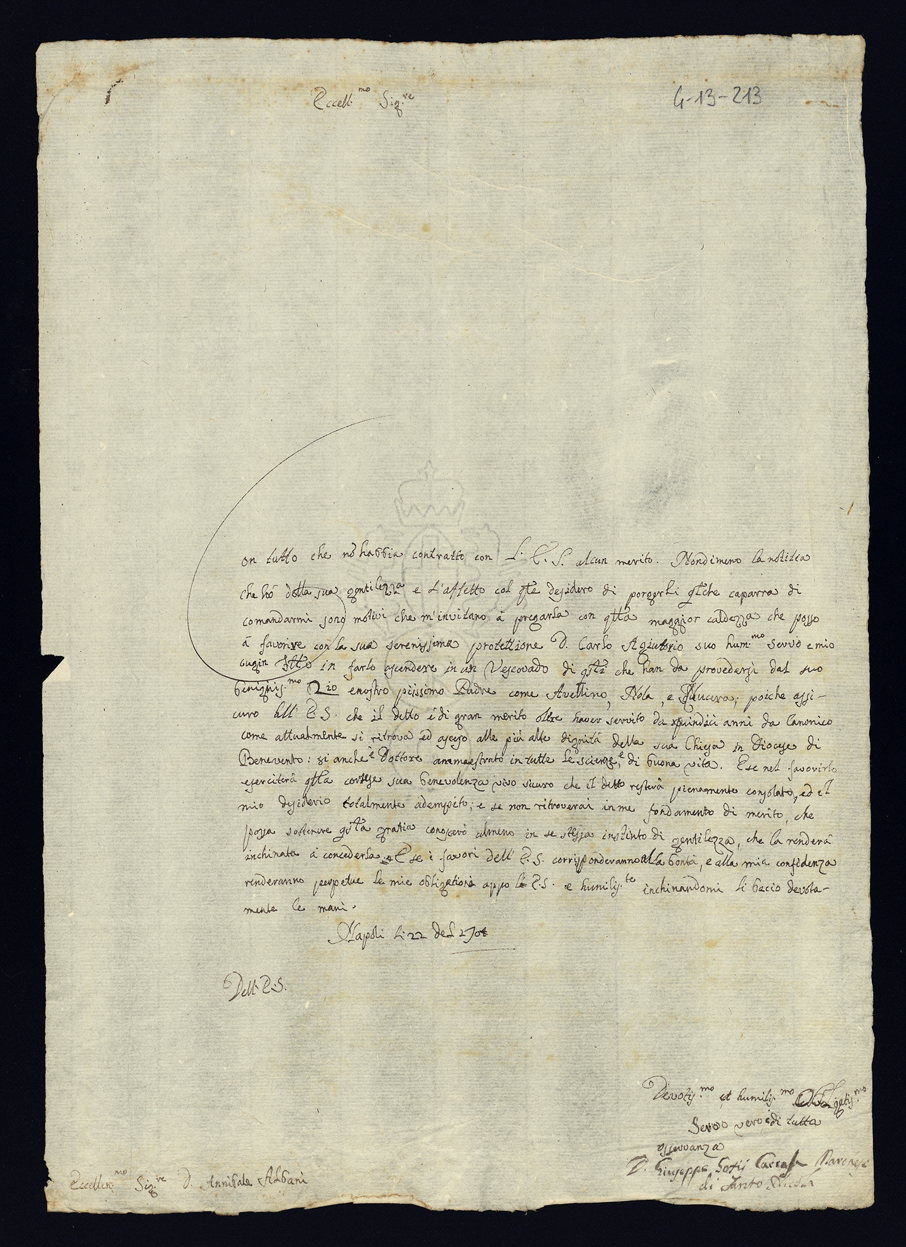 Eccell.mo Sig.re
4-13-213
Con tutto che nõ habbia contratto con L' E. S. alcun merito. Nondimeno la notitia
che hò della sua gentilezza e l'affetto col qle desidero di porgerli qlche caparra di
comandarmi sono motivi che m'invitano à pregarla con qlla maggior caldezza che posso
à favorire con la sua serenissima protettione D. Carlo suo hum.mo servo e mio
cugin in farlo ascendere in un Vescovado di qlli che han da provedersi dal suo
benigniss.mo Zio e nostro piissimo Padre come Avellino, Nola, e poiche assi-
curo all' E. S. che il detto è di gran merito oltre haver servito da quindici anni da Canonico
come attualmente si ritrova ed asceso alle più alte dignità della sua Chiesa in Diocese di
Benevento: si anche è Dottore ammaestrato in tutte le scienze, e di buona vita. E se nel favorirlo
eserciterà qlla cortese sua benevolenza vivo sicuro che il detto resterà pienamente consolato, ed il
mio desiderio totalmente adempito; e se non ritroverai in me fondamento di merito, che
possa sostenere qsta gratia conoscerò almeno in se stessa instinto di gentilezza, che la renderà
inchinata à concederla E se i favori dell' E. S. corrisponderanno alla bontà, e alla mia confidenza
renderanno perpetue le mie obligationi appo la E. S. e humiliss.te inchinandomi li bacio devota-
mente le mani.
Napoli li 22 del 1708
Dell' E. S.
Devotis.mo et humilis.mo
Servo vero e di tutta
osservanza
D. Giuseppe
di Santo
Eccellen.mo Sig.re D. Annibale Albani